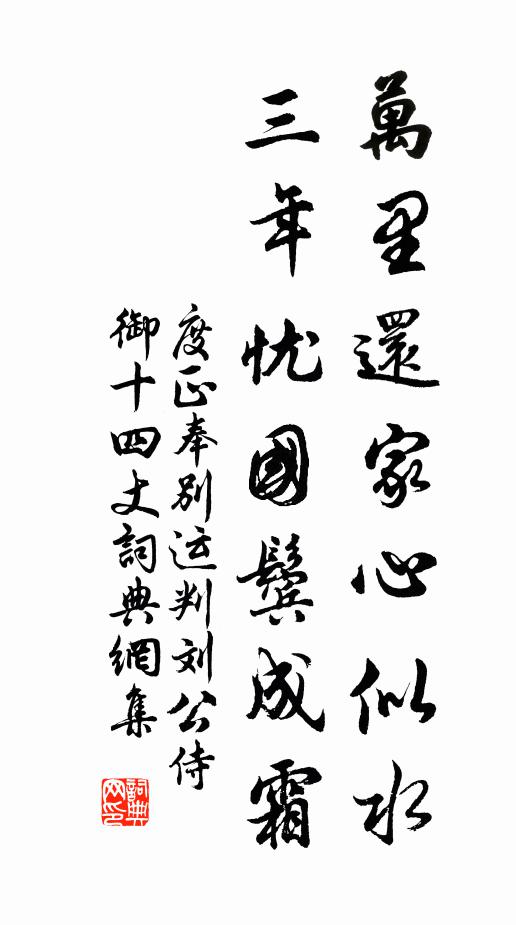 萬里還家心似水
三年忧國鬓成霜
度正奉別运判刘公侍
御十四丈詞典網集
詞典
网印